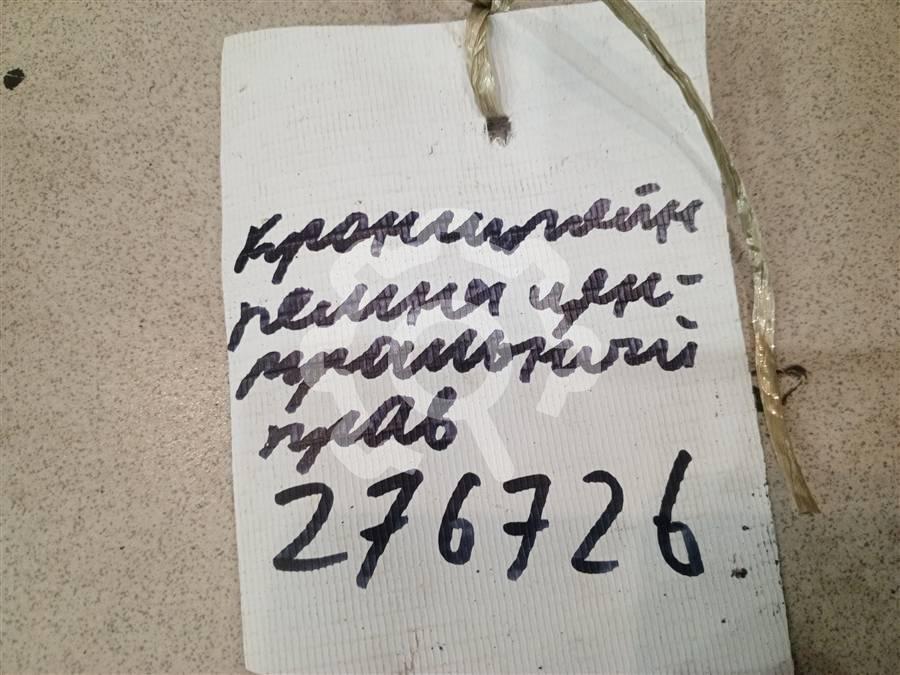 Кронштейн
ремня цен-
тральний
прав
276726